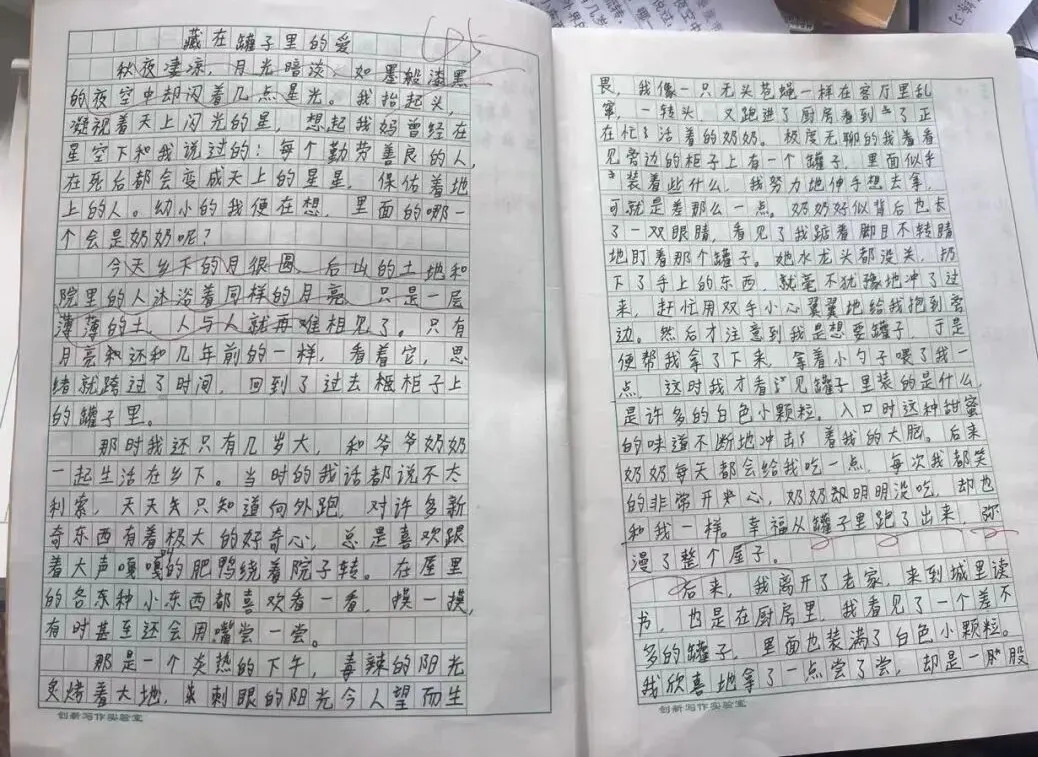 藏在罐子里的爱
秋夜凄凉，月光暗淡，如墨般漆黑
的夜空中却闪着几点星光。我抬起头，
凝视着天上闪光的星，想起我妈曾经在
星空下和我说过的：每个勤劳善良的人，
在死后都会变成天上的星星，保佑着地
上的人。幼小的我便在想，里面的哪一
个会是奶奶呢？
今天乡下的月很圆，后山的土地和
院里的人沐浴着同样的月亮，只是一层
薄薄的土，人与人就再难相见了。只有
月亮和还和几年前的一样，看着它，思
绪就跨过了时间，回到了过去柜子上
的罐子里。
那时我还只有几岁大，和爷爷奶奶
一起生活在乡下。当时的我话都说不太
利索，天天只知道向外跑，对许多新
奇东西有着极大的好奇心，总是喜欢跟
着大声嘎嘎叫的肥鸭绕着院子转。在屋里
的各种小东西都喜欢看一看，摸一摸，
有时甚至还会用嘴尝一尝。
那是一个炎热的下午，毒辣的阳光
炙烤着大地，刺眼的阳光令人望而生
创新写作实验室
畏，我像一只无头苍蝇一样在客厅里乱
窜，一转头，又跑进了厨房看到了正
在忙活着的奶奶。极度无聊的我看着
见旁边的柜子上有一个罐子，里面似乎
装着些什么，我努力地伸手想去拿，
可就是差那么一点。奶奶好似背后也长
了一双眼睛，看见了我踮着脚目不转睛
地盯着那个罐子。她水龙头都没关，扔
下了手上的东西，就毫不犹豫地冲了过
来，赶忙用双手小心翼翼地给我抱到旁
边。然后才注意到我是想要罐子，于是
便帮我拿了下来，拿着小勺子喂了我一
点，这时我才看见罐子里装的是什么，
是许多的白色小颗粒。入口时这种甜蜜
的味道不断地冲击着我的大脑。后来
奶奶每天都会给我吃一点，每次我都笑
的非常开心，奶奶明明没吃，却也
和我一样。幸福从罐子里跑了出来，弥
漫了整个屋子。
后来，我离开了老家，来到城里读
书，也是在厨房里，我看见了一个差不
多的罐子，里面也装满了白色小颗粒。
我欣喜地拿了一点尝了尝，却是一股
创新写作实验室